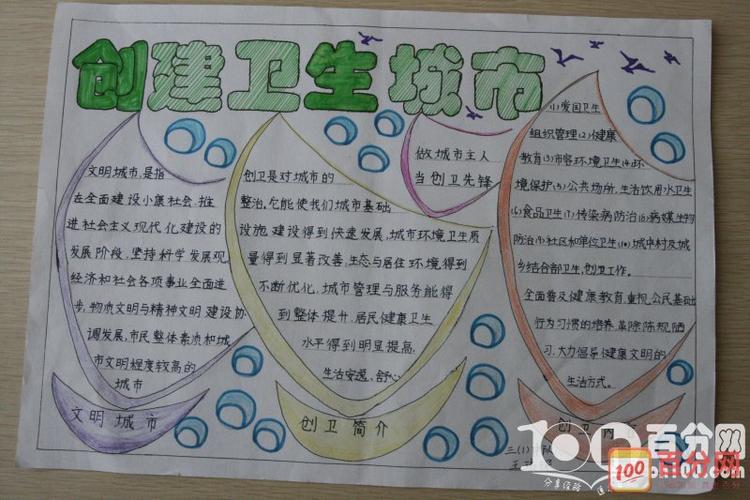 创建卫生城市
文明城市,是指
在全面建设小康社会,推
进社会主义现代化建设的
发展阶段,坚持科学发展观,
经济和社会各项事业全面进
步,物质文明与精神文明建设协
调发展,市民整体素质和城
市文明程度较高的
城市
文明城市
创卫是对城市的
整治,它能使我们城市基础
设施建设得到快速发展,城市环境卫生质
量得到显著改善,生态与居住环境得到
不断优化,城市管理与服务能得
到整体提升,居民健康卫生
水平得到明显提高,
生活安逸、舒心
创卫简介
做城市主人
当创卫先锋
(1)爱国卫生
组织管理(2)健康
教育(3)市容环境卫生(4)环
境保护(5)公共场所,生活饮用水卫生
(6)食品卫生(7)传染病防治(8)病媒生物
防治(9)社区和单位卫生(10)城中村及城
乡结合部卫生,创卫工作。
全面普及健康教育,重视公民基础
行为习惯的培养,革除陈规陋
习,大力倡导健康文明的
生活方式。
创卫内
三(1)
王
100百分网
百分网
100